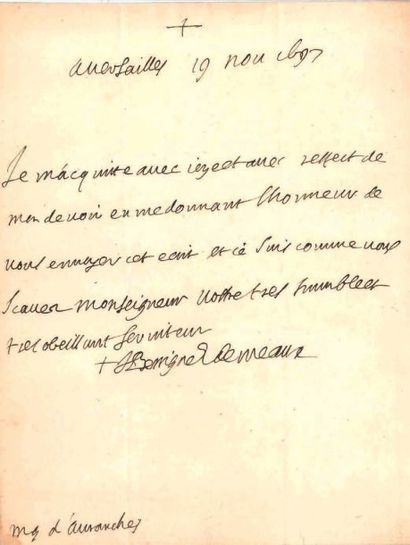 +
a versailles 19 nov 1697
Je m'acquitte avec joye et avec respect de
mon devoir en me donnant l'honneur de
vous envoyer cet ecrit et je suis comme vous
scavez Monseigneur vostre tres humble et
tres obeissant serviteur
+ J Benigne E. de meaux
mgr d'avranches